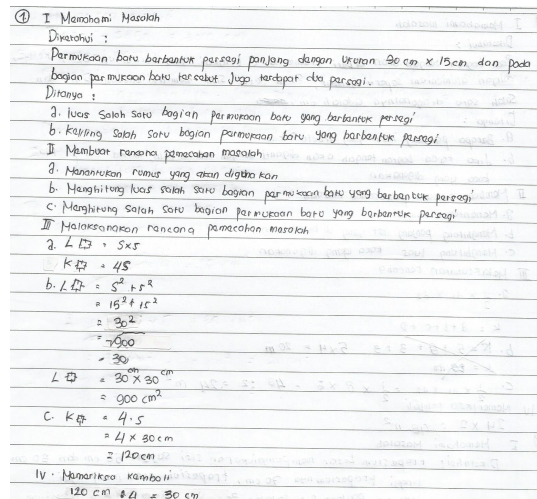 ① I Memahami Masalah
Diketahui :
Permukaan batu berbentuk persegi panjang dengan ukuran 30 cm x 15cm dan pada
bagian permukaan batu tersebut juga terdapat dua persegi.
Ditanya :
a. luas salah satu bagian permukaan batu yang berbentuk persegi
b. keliling salah satu bagian permukaan batu yang berbentuk persegi
II Membuat rencana pemecahan masalah
a. Menentukan rumus yang akan digunakan
b. Menghitung luas salah satu bagian permukaan batu yang berbentuk persegi
c. Menghitung salah satu bagian permukaan batu yang berbentuk persegi
III Melaksanakan rencana pemecahan masalah
a. L □ = s x s
K □ = 4s
b. L □ = s² + s²
= 15² + 15²
= 30²
= √900
= 30
L □ = 30 cm x 30 cm
= 900 cm²
C. K □ = 4 . s
= 4 x 30 cm
= 120 cm
IV. Memeriksa kembali
120 cm : 4 = 30 cm